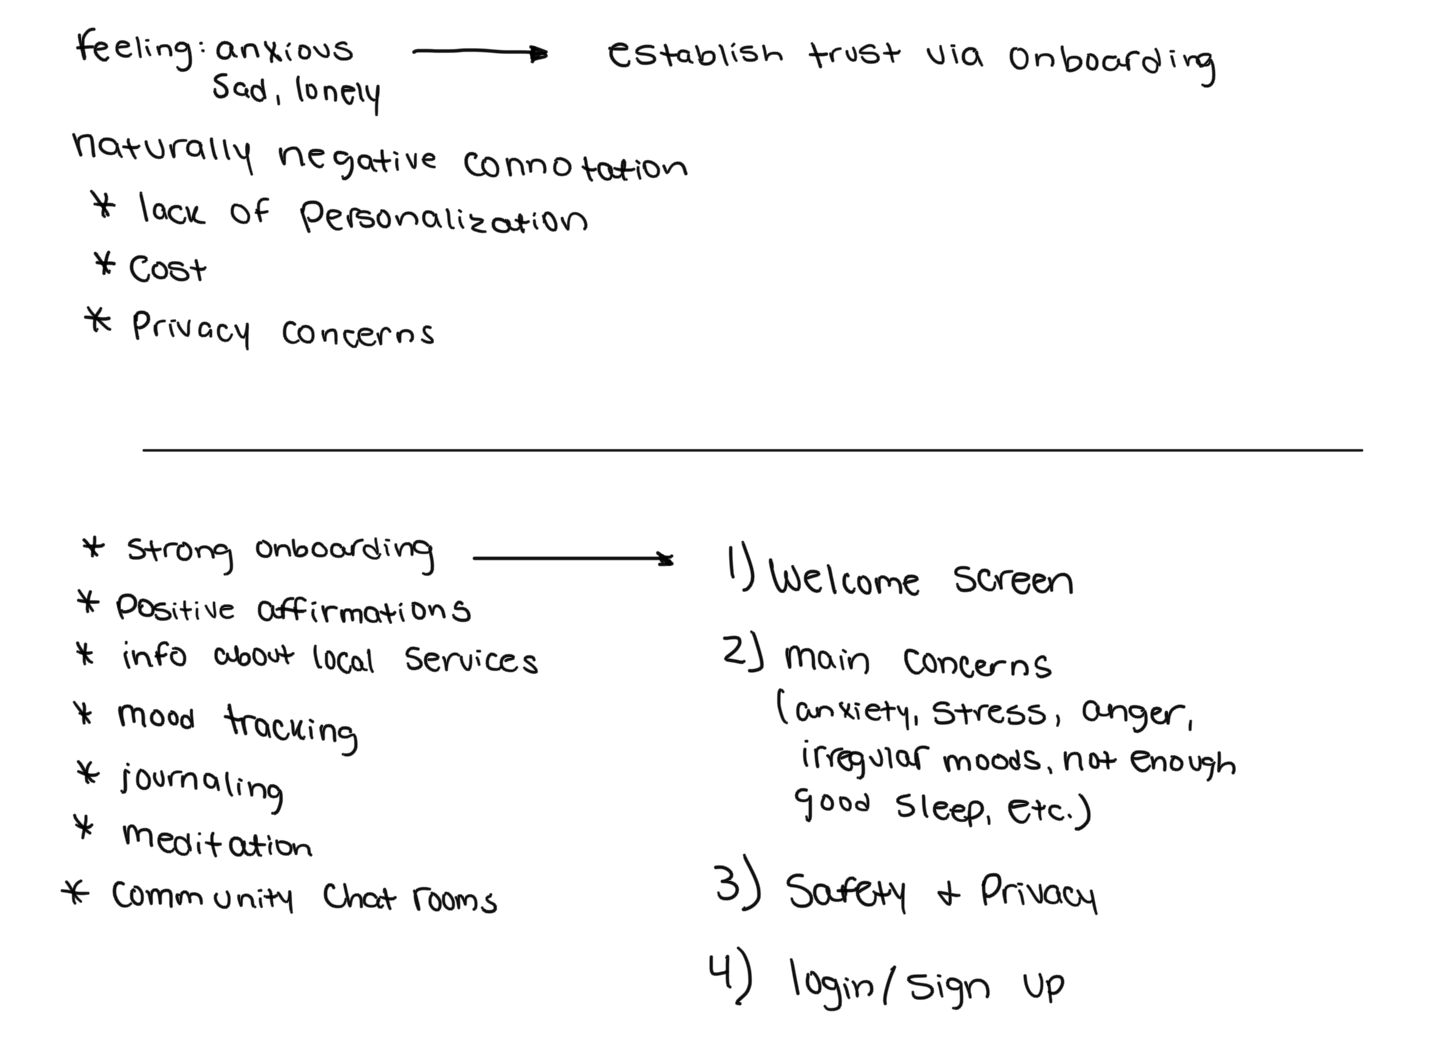 feeling: anxious → establish trust via onboarding
sad, lonely
naturally negative connotation
* lack of personalization
* cost
* privacy concerns
* strong onboarding →
* positive affirmations
* info about local services
* mood tracking
* journaling
* meditation
* community chat rooms
1) welcome screen
2) main concerns
(anxiety, stress, anger,
irregular moods, not enough
good sleep, etc.)
3) safety + privacy
4) login/sign up